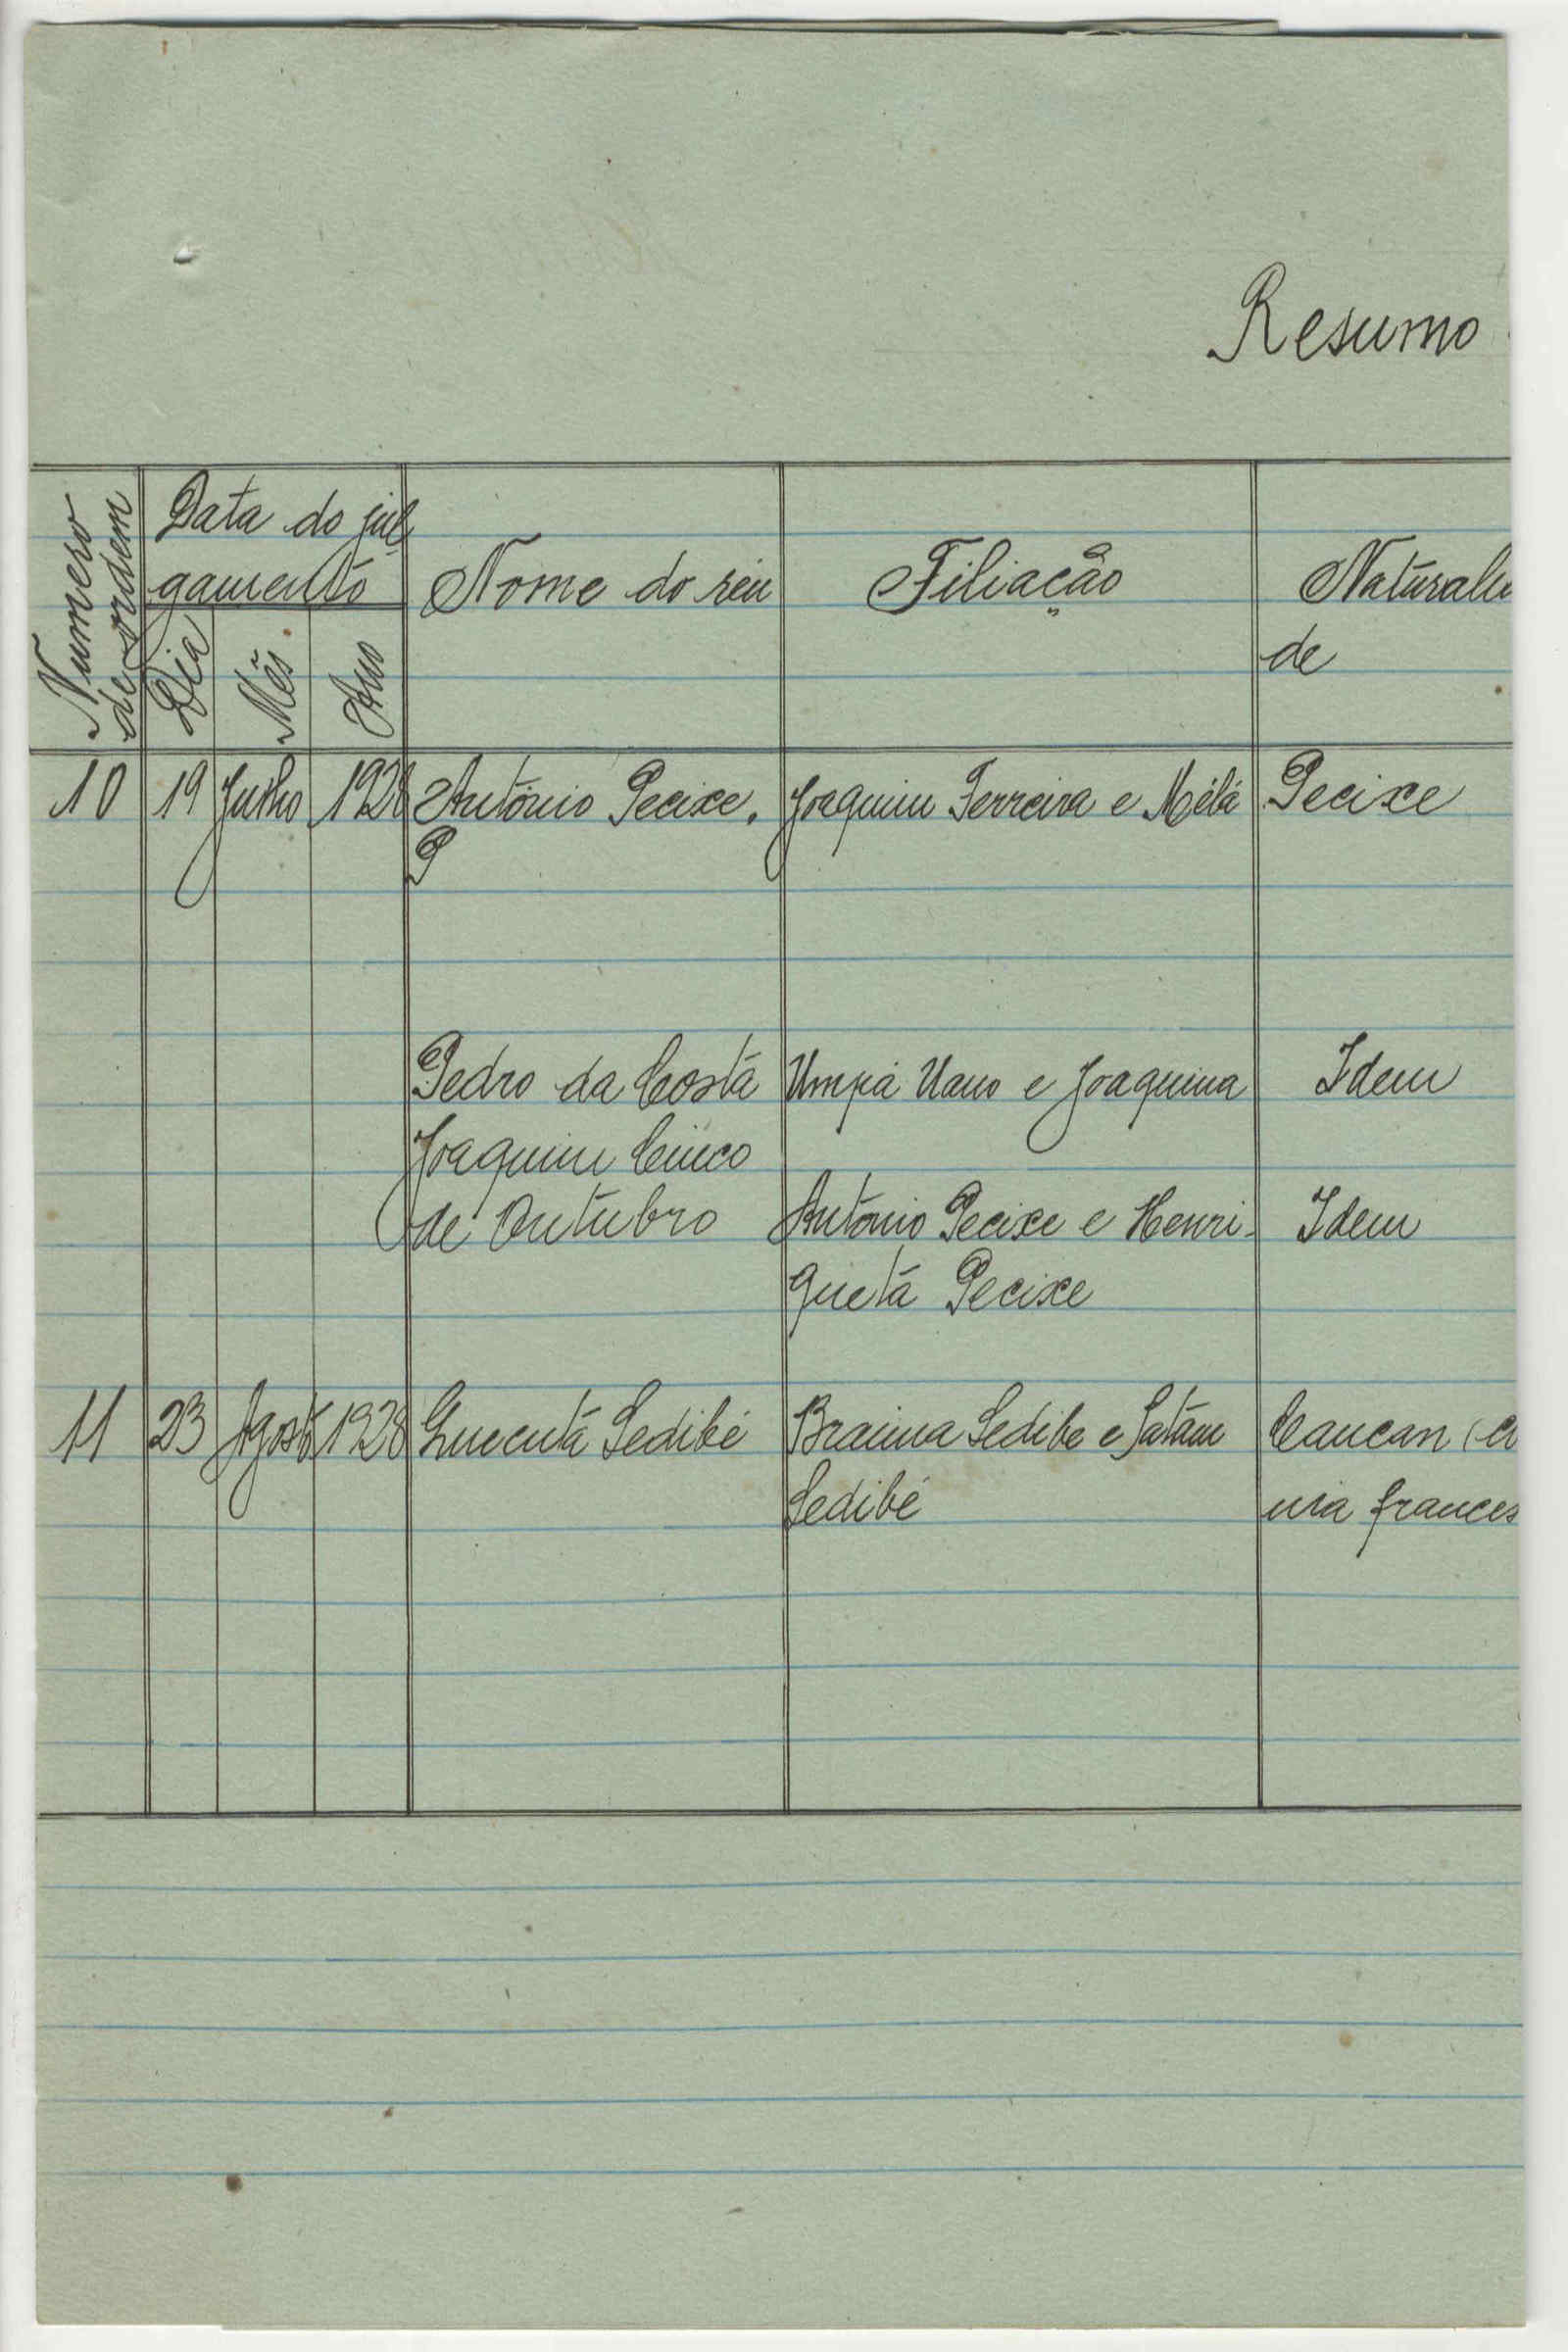 Resumo
Numero de ordem
Data do jul
gamento
Dia
Mês
Ano
Nome do réu
Filiação
Naturali
de
10 19 Julho 1928 António Pecixe. Joaquim Ferreira e Mélá Pecixe
P
Pedro da Costa Umpá Uano e Joaquina Idem
Joaquim Cinco
de Outubro António Pecixe e Henri- Idem
queta Pecixe
11 23 Agosto 1928 Sedibé Braima Sedibe e Satam Cancan
Sedibé nia frances